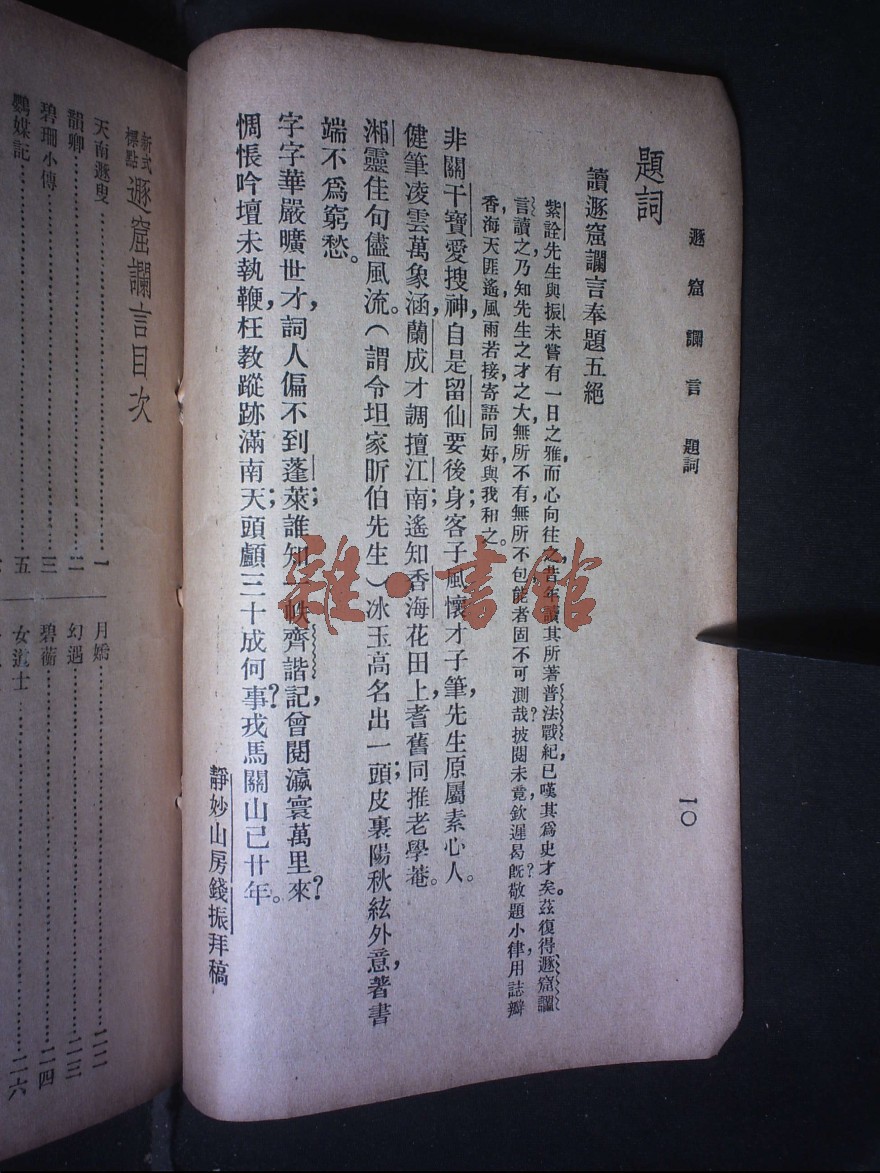 遯窟讕言 題詞 一〇
題詞
讀遯窟讕言奉題五絕
紫詮先生與振未嘗有一日之雅，而心向往之，昔年讀其所著普法戰紀，已嘆其爲史才矣。茲復得遯窟讕
言讀之，乃知先生之才之大，無所不有，無所不包，能者固不可測哉？披閱未竟，欽遲曷旣？敬題小律，用誌瓣
香，海天匪遙，風雨若接，寄語同好，與我和之。
非關干寶愛搜神，自是留仙要後身；客子風懷才子筆，先生原屬素心人。
健筆凌雲萬象涵，蘭成才調擅江南；遙知香海花田上，耆舊同推老學菴。
湘靈佳句儘風流。（謂令坦家昕伯先生）冰玉高名出一頭；皮裏陽秋絃外意，著書
端不爲窮愁。
字字華嚴曠世才，詞人偏不到蓬萊；誰知一帙齊諧記，曾閱瀛寰萬里來？
惆悵吟壇未執鞭，枉教蹤跡滿南天；頭顱三十成何事？戎馬關山已廿年。
靜妙山房錢振拜稿
雜·書館
新式標點 遯窟讕言目次
天南遯叟…………一
韻卿…………二
碧珊小傳…………三
鸚媒記…………五
月嬌…………二二
幻遇…………二三
碧蘅…………二四
女道士…………二六